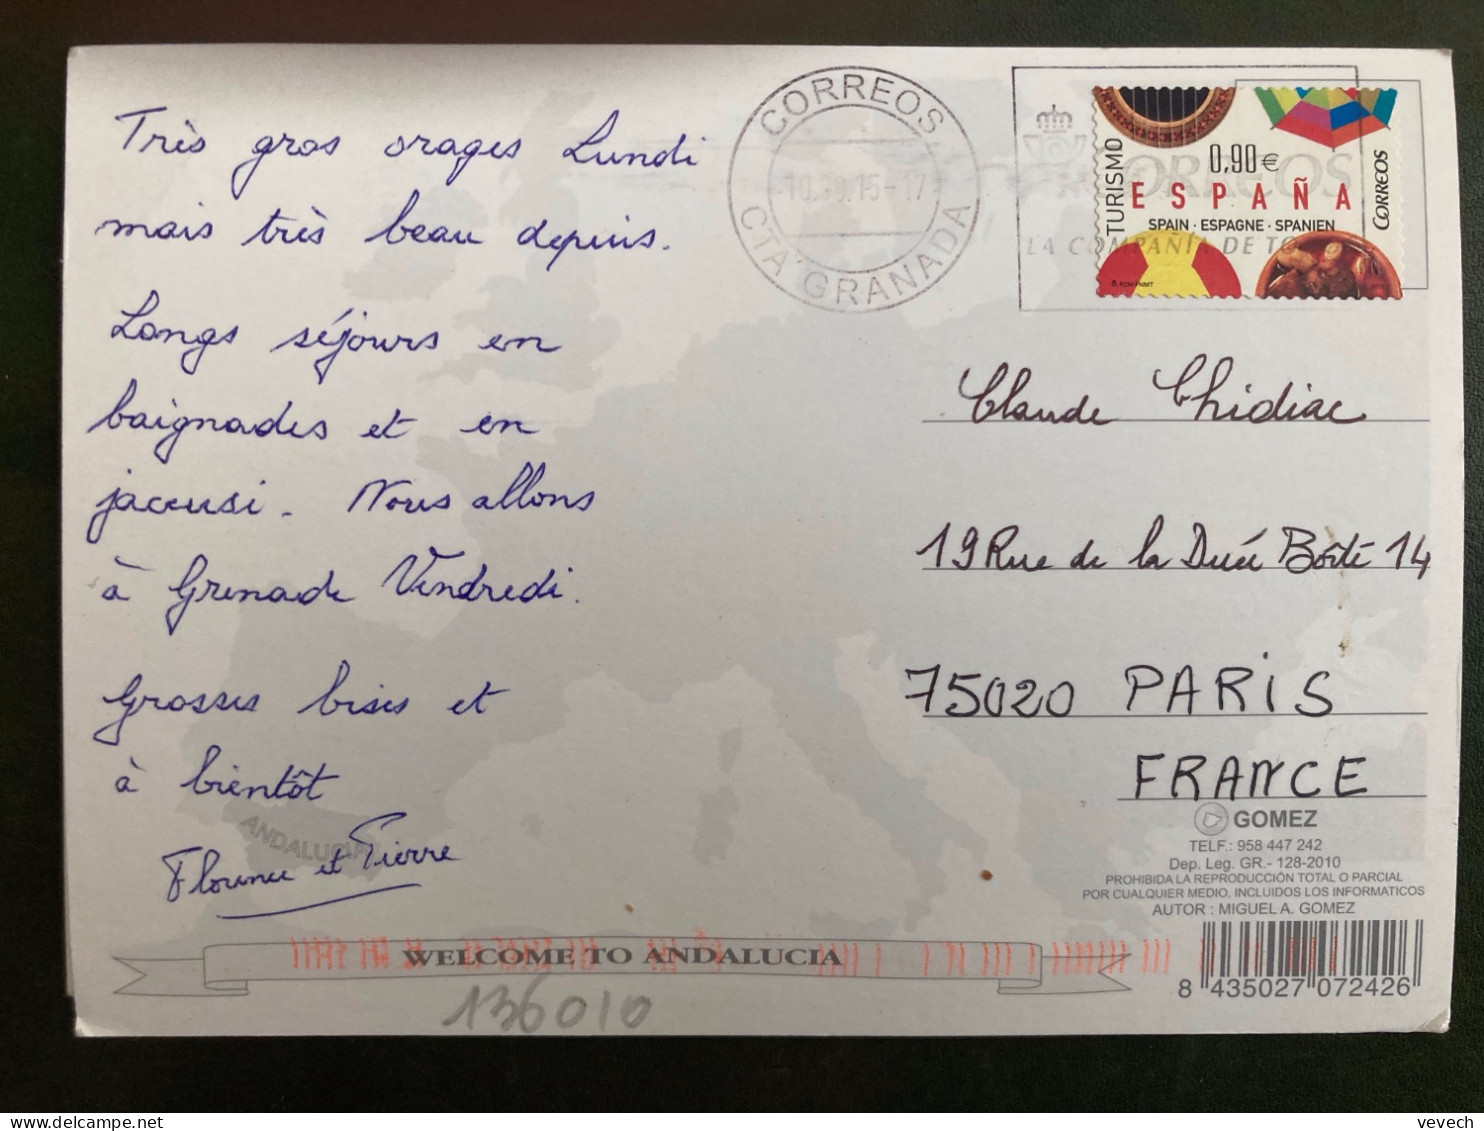 Très gros orages Lundi
mais très beau depuis.
Longs séjours en
baignades et en
jacousi. Nous allons
à Grenade Vendredi.
Grosses bises et
à bientôt
Florence et Pierre
CORREOS
CTA GRANADA
TURISMO
0,90€
ESPAÑA
SPAIN · ESPAGNE · SPANIEN
CORREOS
CORREOS
LA COMPAÑÍA DE
Claude Chidiac
19 Rue de la Duée Boîte 14
75020 PARIS
FRANCE
GOMEZ
TELF.: 958 447 242
Dep. Leg. GR.- 128-2010
PROHIBIDA LA REPRODUCCIÓN TOTAL O PARCIAL
POR CUALQUIER MEDIO, INCLUIDOS LOS INFORMATICOS
AUTOR : MIGUEL A. GOMEZ
8 435027 072426
ANDALUCIA
WELCOME TO ANDALUCIA
136010
vevech